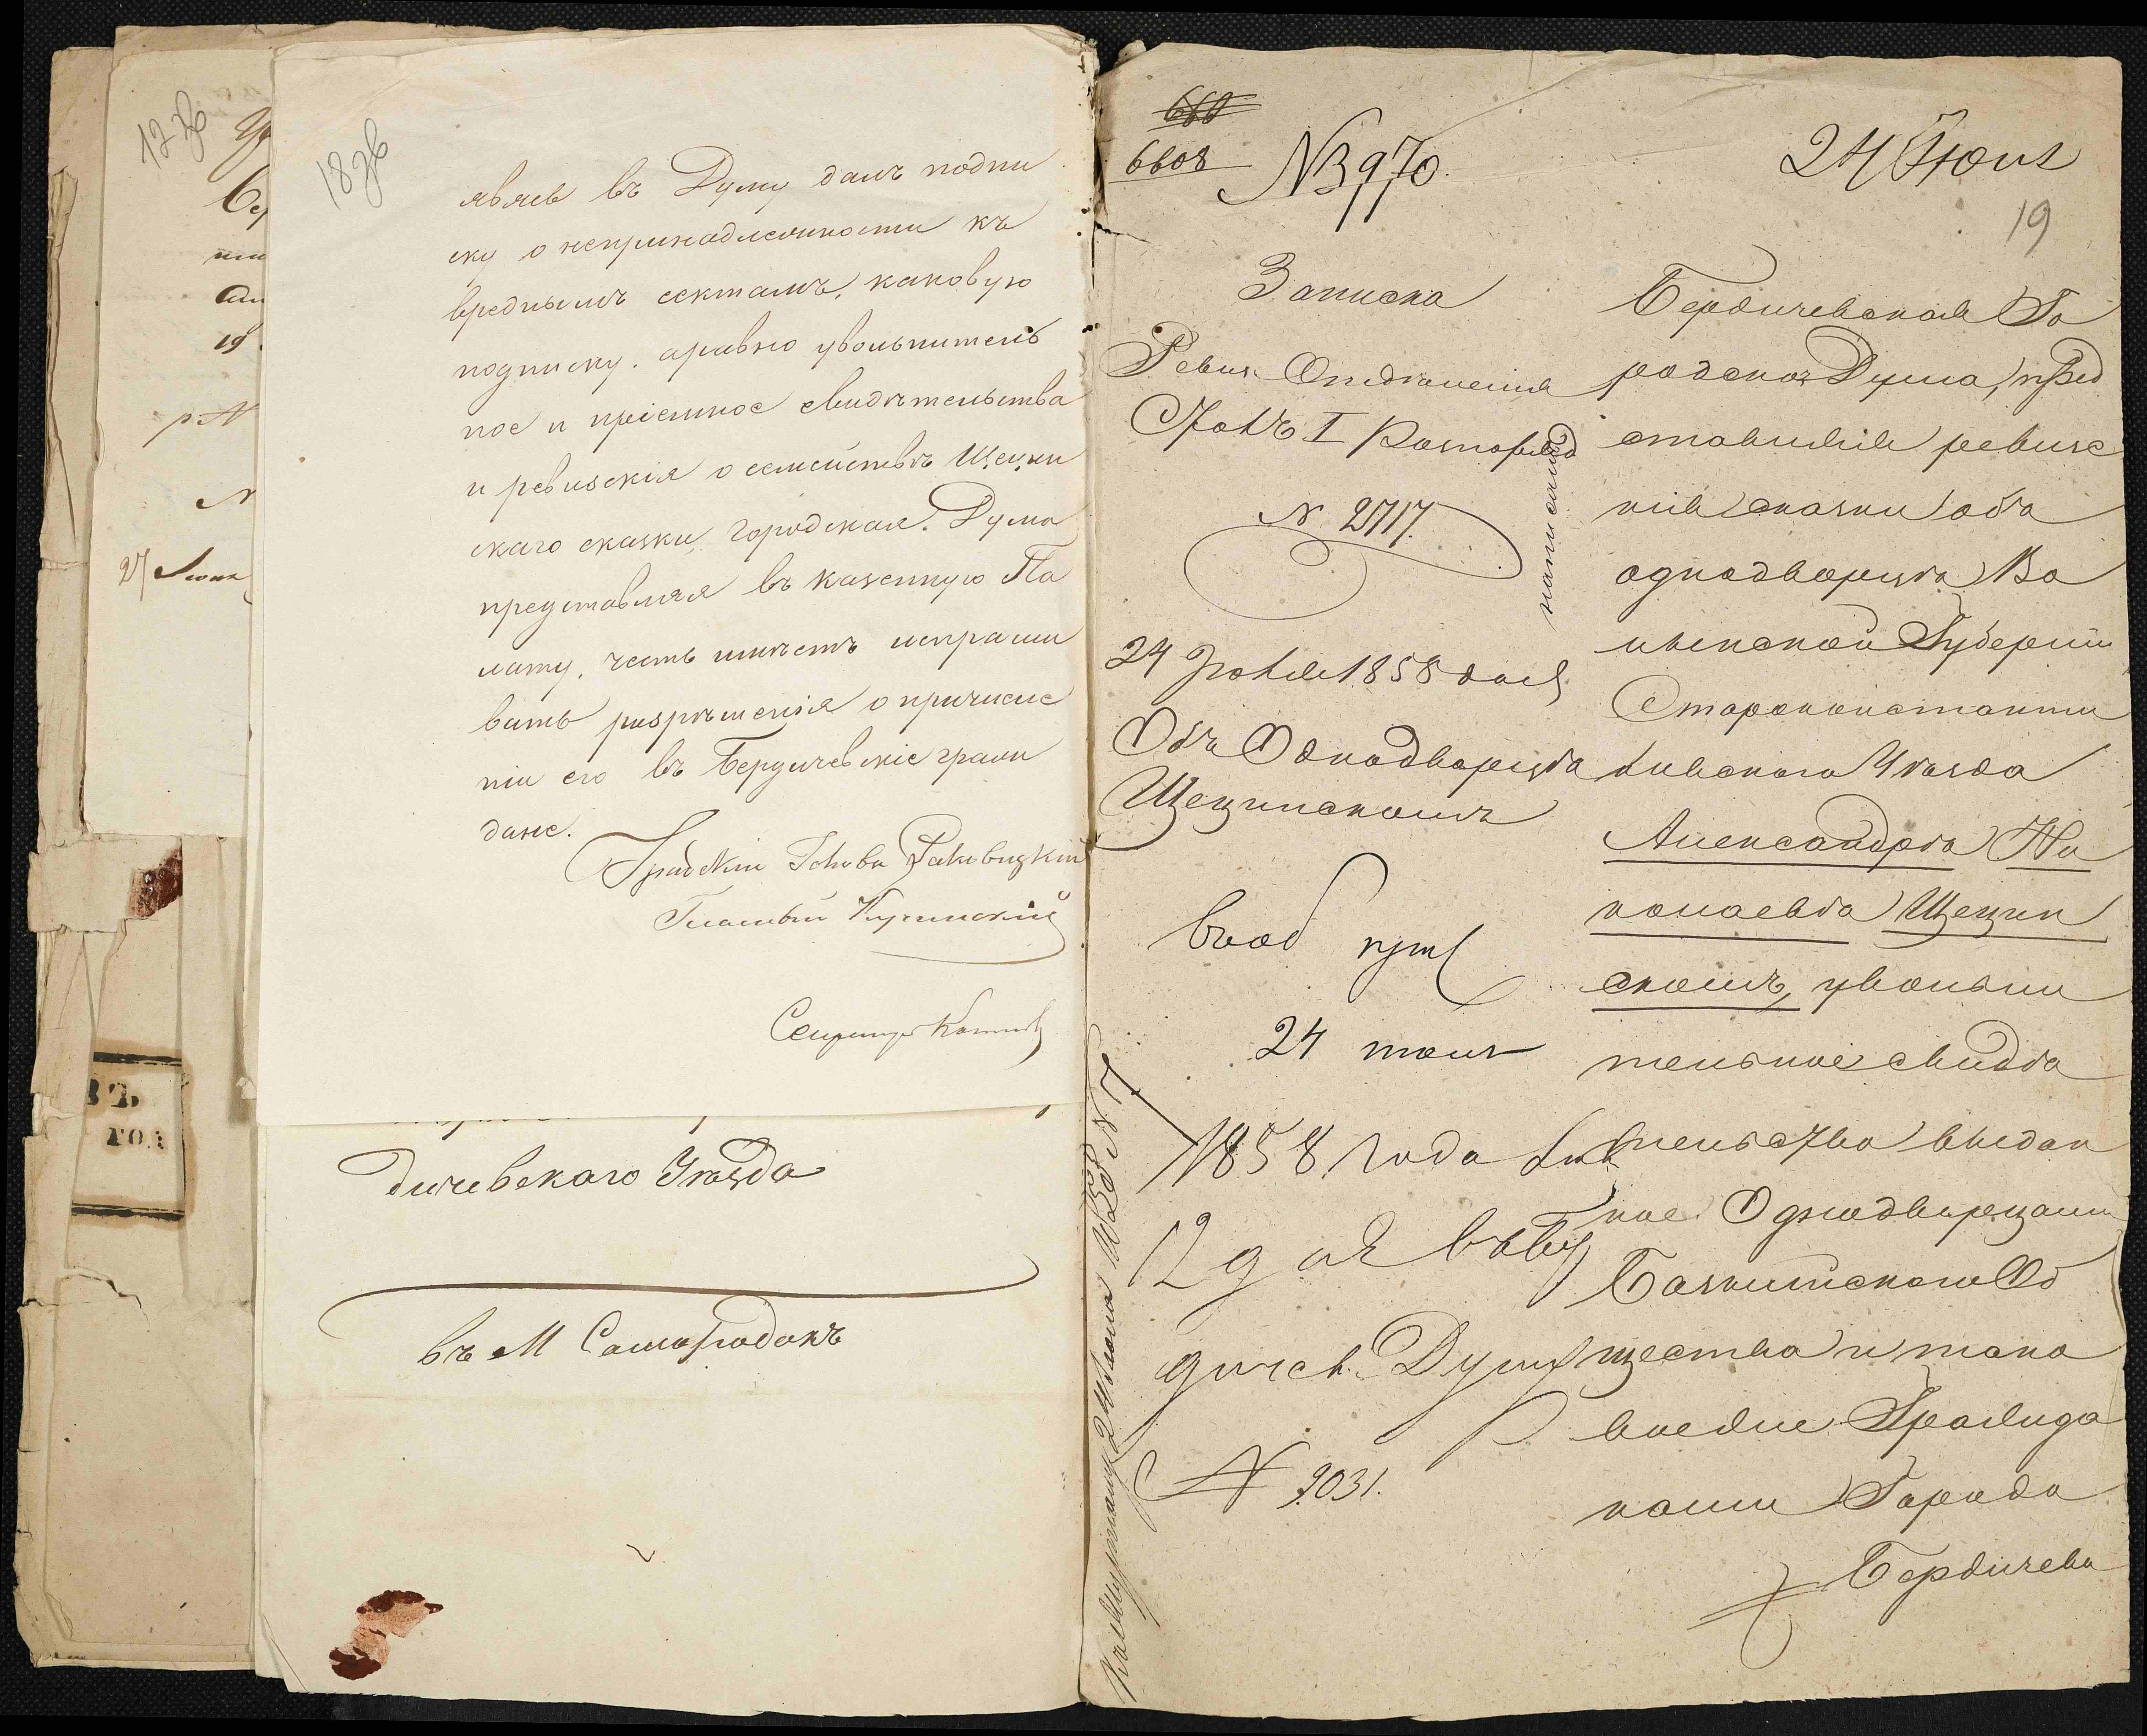 17 зв
18 зв
27 Июня
ВЪ
ГОД
являсь въ Думу далъ подпи
ску о непринадлежности къ
вреднымъ сектамъ, каковую
подписку. а равно увольнитель
ное и пріемное свидѣтельства
и ревизскія о семействѣ Щецин
скаго сказки Городская. Дума
представляя въ казенную Па
лату, честь имѣетъ испраши
вать разрѣшенія о причисле
ніи его въ Бердичевскіе граж
дане.
Градскій Голова
Гласный
Секретарь
дичевскаго Уѣзда
въ М Самогродокъ
6608
N 3970.
24 Июня
19
Записка
Ревиз. Отдѣленія
Столъ I
N. 2717.
написано
24 Июня 1858 года
Объ Однодворцѣ
Щецинскомъ
24 июня
1858 года
12 д
дичев. Думу
N 9031.
Бердичевская Го
родская Дума, пред
ставивъ ревизс
кія сказки объ
однодворцѣ Во
лынской Губерніи
Староконстанти
новскаго Уѣзда
Александрѣ Ни
колаевѣ Щецин
скомъ, увольни
тельное свидѣ
тельство выдан
ное Однодворцами
Об
щества и тако
вое же Гражда
нами Города
Бердичева